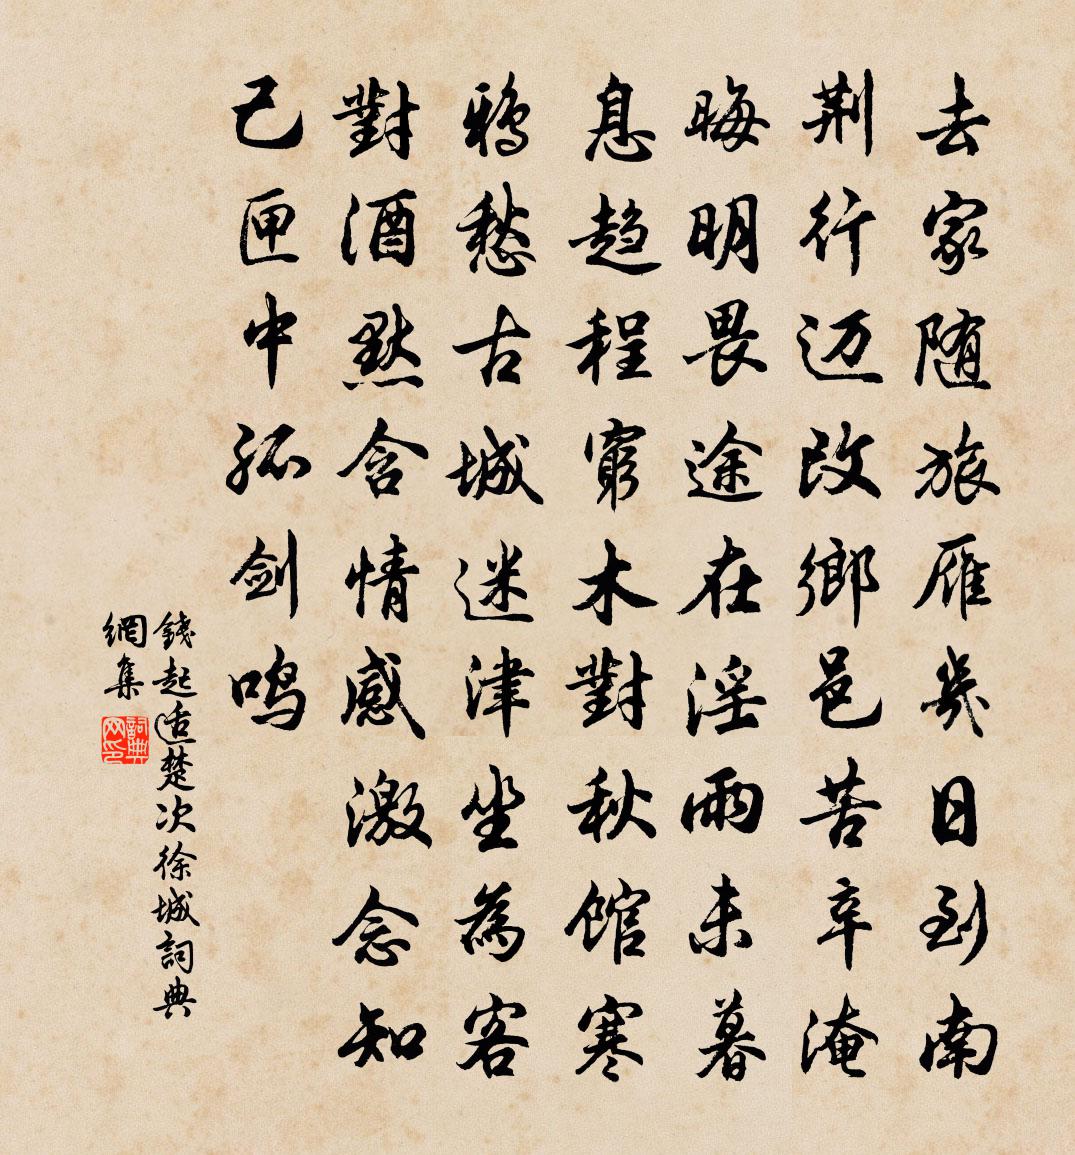 去家随旅雁幾日到南
荆行迈改鄉邑苦辛淹
晦明畏途在淫雨未暮
息趋程窮木對秋馆寒
鴉愁古城迷津坐為客
對酒默含情感激念知
己匣中孤剑鸣
錢起适楚次徐城詞典
網集
詞典网印